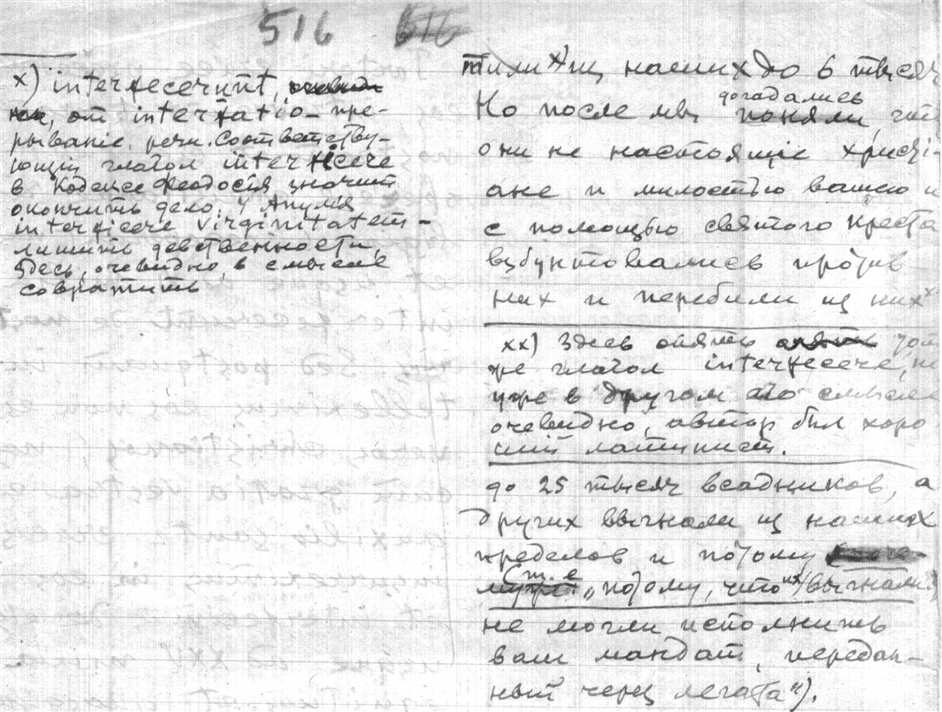 516 516
x) interfecerunt, очевид-
но, от interfatio – пре-
рываніе речи. Соответству-
ющій глагол interficere
в Кодексе Феодосія значит
окончить дело, у Апулея
interficere virginitatem –
лишить девственности.
Здесь, очевидно, в смысле
совратить
тили x) из наших до 6 тысяч
Но после мы поняли, что
догадались
они не настоящіе христі-
ане и милостью вашею и
с помощью святого креста
взбунтовались против
них и перебили из них xx)
xx) Здесь опять опять тот
же глагол interficere, но
уже в другом его смысле
очевидно, автор был хоро
ший латинист.
до 25 тысяч всадников, а
других выгнали из наших
пределов и потому
(т. е. „потому, что их выгнали")
не могли исполнить
ваш мандат, передан-
ный через легата").